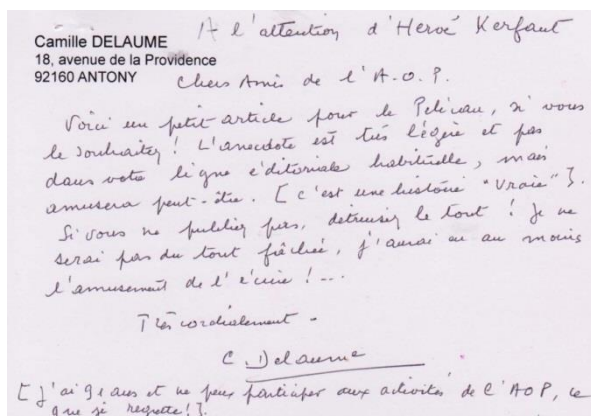 A l'attention d'Hervé Kerfant
Camille DELAUME
18, avenue de la Providence
92160 ANTONY
Chers Amis de l'A.O.P.
Voici un petit article pour le Pélican, si vous
le souhaitez ! L'anecdote est très légère et pas
dans votre ligne éditoriale habituelle, mais
amusera peut-être. [c'est une histoire "vraie"].
Si vous ne publiez pas, détruisez le tout ! Je ne
serai pas du tout fâchée, j'aurai eu au moins
l'amusement de l'écrire !...
Très cordialement -
C. Delaume
[J'ai 91 ans et ne peux participer aux activités de l'AOP, ce
que je regrette !].